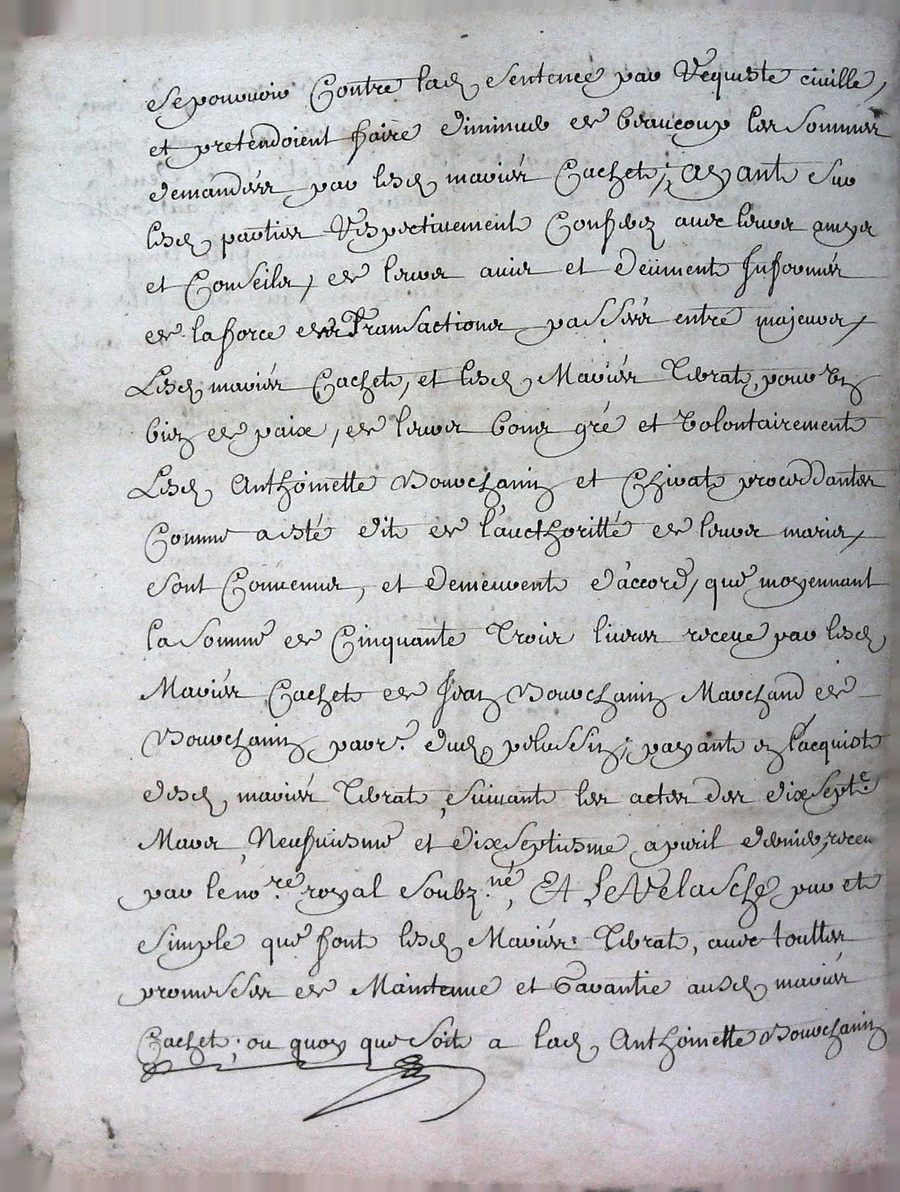 se pourvoir Contre lad sentence par Requeste civille,
et pretendoient faire diminuer de beaucoup les sommes
demandées par lesd mariés Cachet; ayant sur
lesd parties Respectivement Conferéz avec leurs amys
et Conseils, de leurs avis et deüment Informés
de la force des Transactions passées entre majeurs,
Lesd mariés Cachet, et lesd Mariés Librat, pour
bien de paix, de leurs bons gré et volontairement
Lesd Anthoinette Bourchanin et Chirat proceddantes
Comme a esté dit de l'aucthoritté de leurs maris,
sont Convenus, et demeurent d'accord, que moyennant
la somme de Cinquante Trois livres receue par lesd
Mariés Cachet de Jean Bourchanin Marchand de
Bourchanin parr.e dud pelussin; payant en l'acquist
desd mariés Librat, suivant les actes des dix sept.e
Mars, Neufviesme et dixseptiesme apvril dernier, receu
par le no.re royal soubz.né, Et le Relasche pur et
simple que font lesd Mariés Librat, avec touttes
promesses de Maintenue et Garantie ausd mariés
Cachet; ou quoy que soit a lad Anthoinette Bourchanin